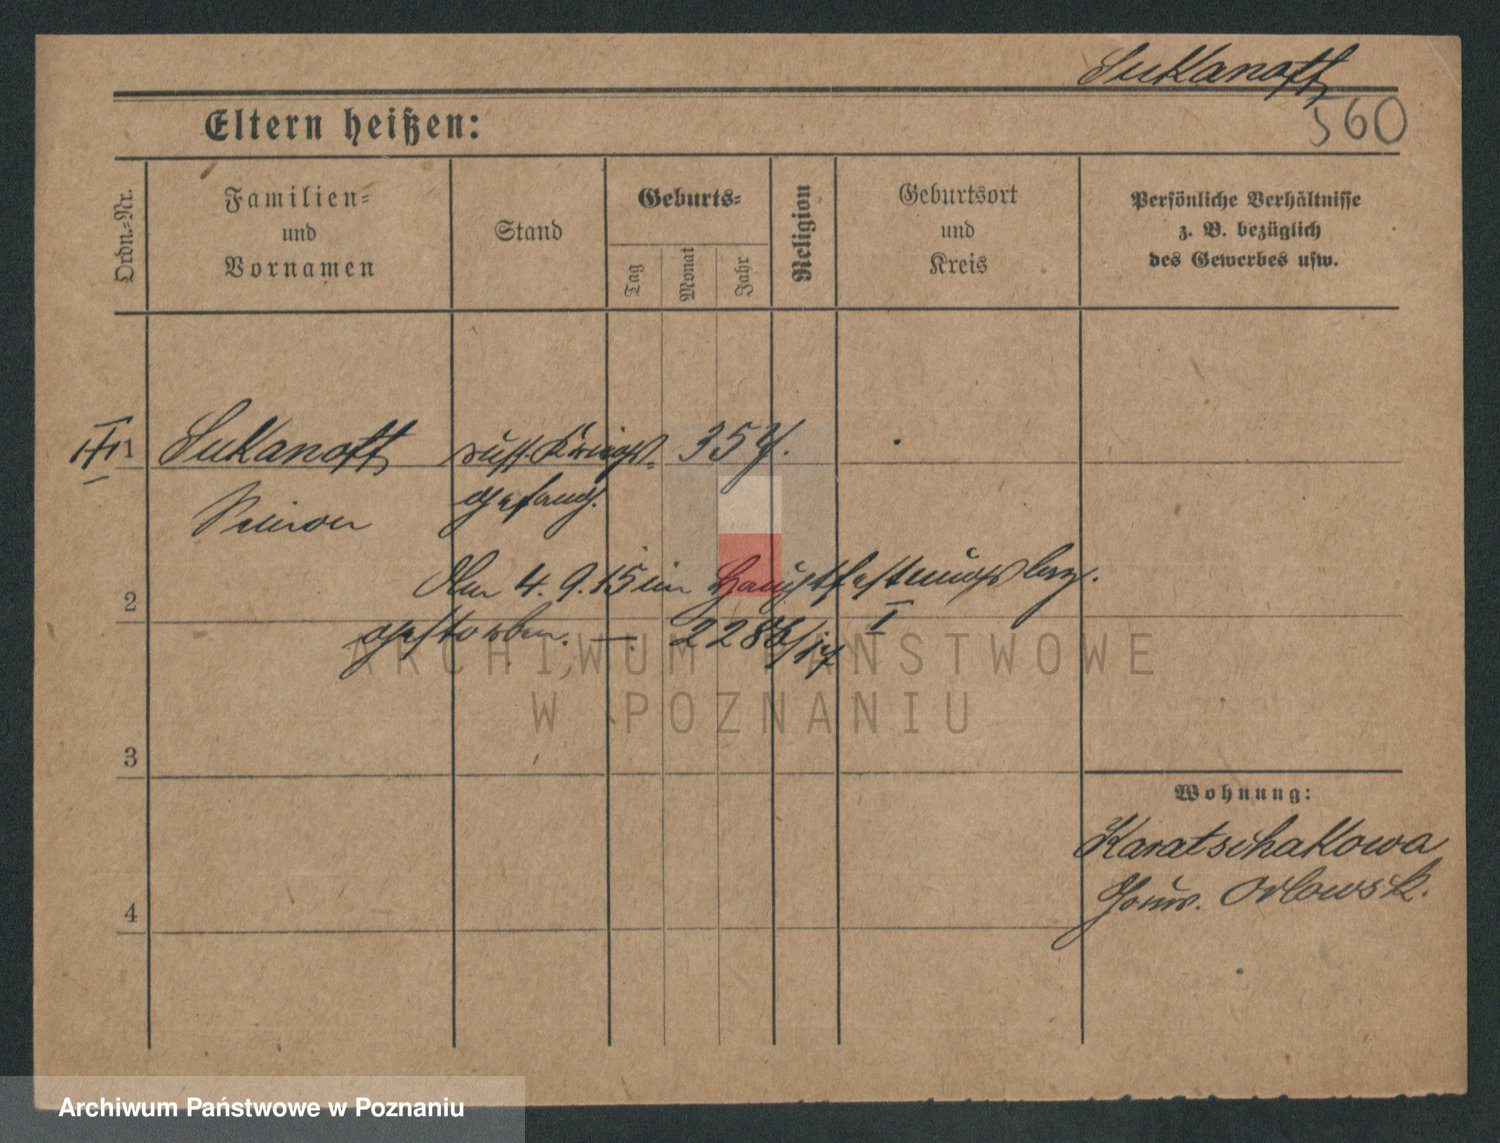 Sukanoff
560
Eltern heißen:
Ordn.-Nr.
Familien-
und
Vornamen
Stand
Geburts-
Tag
Monat
Jahr
Religion
Geburtsort
und
Kreis
Persönliche Verhältnisse
z. B. bezüglich
des Gewerbes usw.
1 Sukanoff russ. Kriegs- 35 J.
gefang.
Am 4. 9. 15 im Hauptfestungslaz. I
2
gestorben. — 2286/17
3
Wohnung:
Karatschakowa
Gouv. Orlowsk.
4
ARCHIWUM PAŃSTWOWE
W POZNANIU
Archiwum Państwowe w Poznaniu